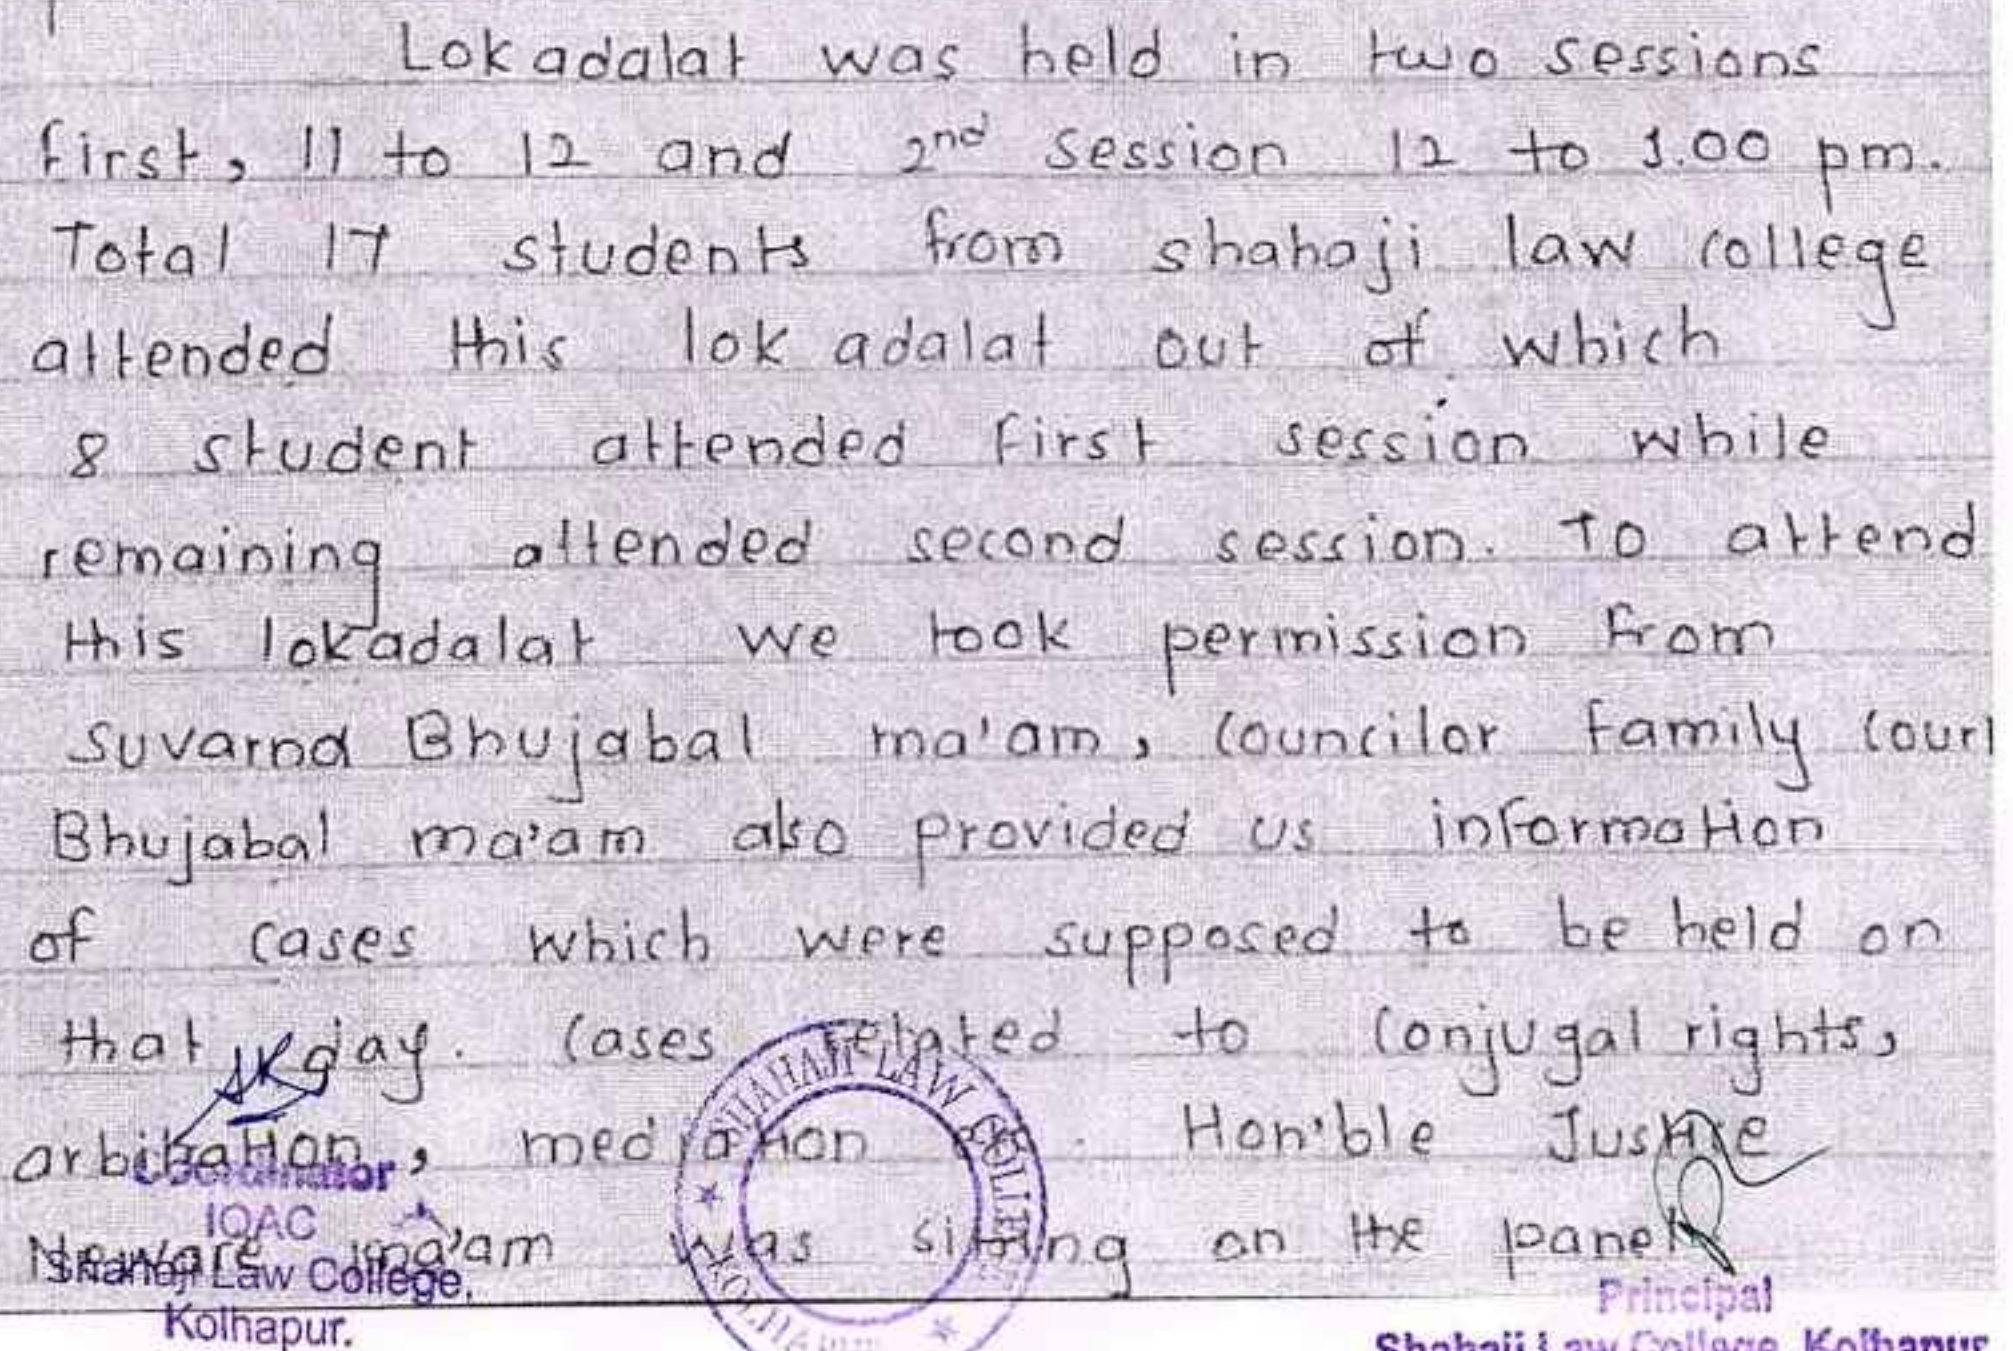 Lokadalat was held in two sessions
first, 11 to 12 and 2nd session 12 to 1.00 pm.
Total 17 students from shahaji law college
attended this lok adalat out of which
8 student attended first session while
remaining attended second session. To attend
this lokadalat we took permission from
Suvarna Bhujabal ma'am, Councilor family cour
Bhujabal ma'am also provided us information
of cases which were supposed to be held on
that day. Cases related to Conjugal rights,
mediation Hon'ble Justice
ma'am was sitting on the panel
Coordinator
IQAC
Shahaji Law College,
Kolhapur.
SHAHAJI LAW COLLEGE
KOLHAPUR
Principal
Shahaji Law College, Kolhapur